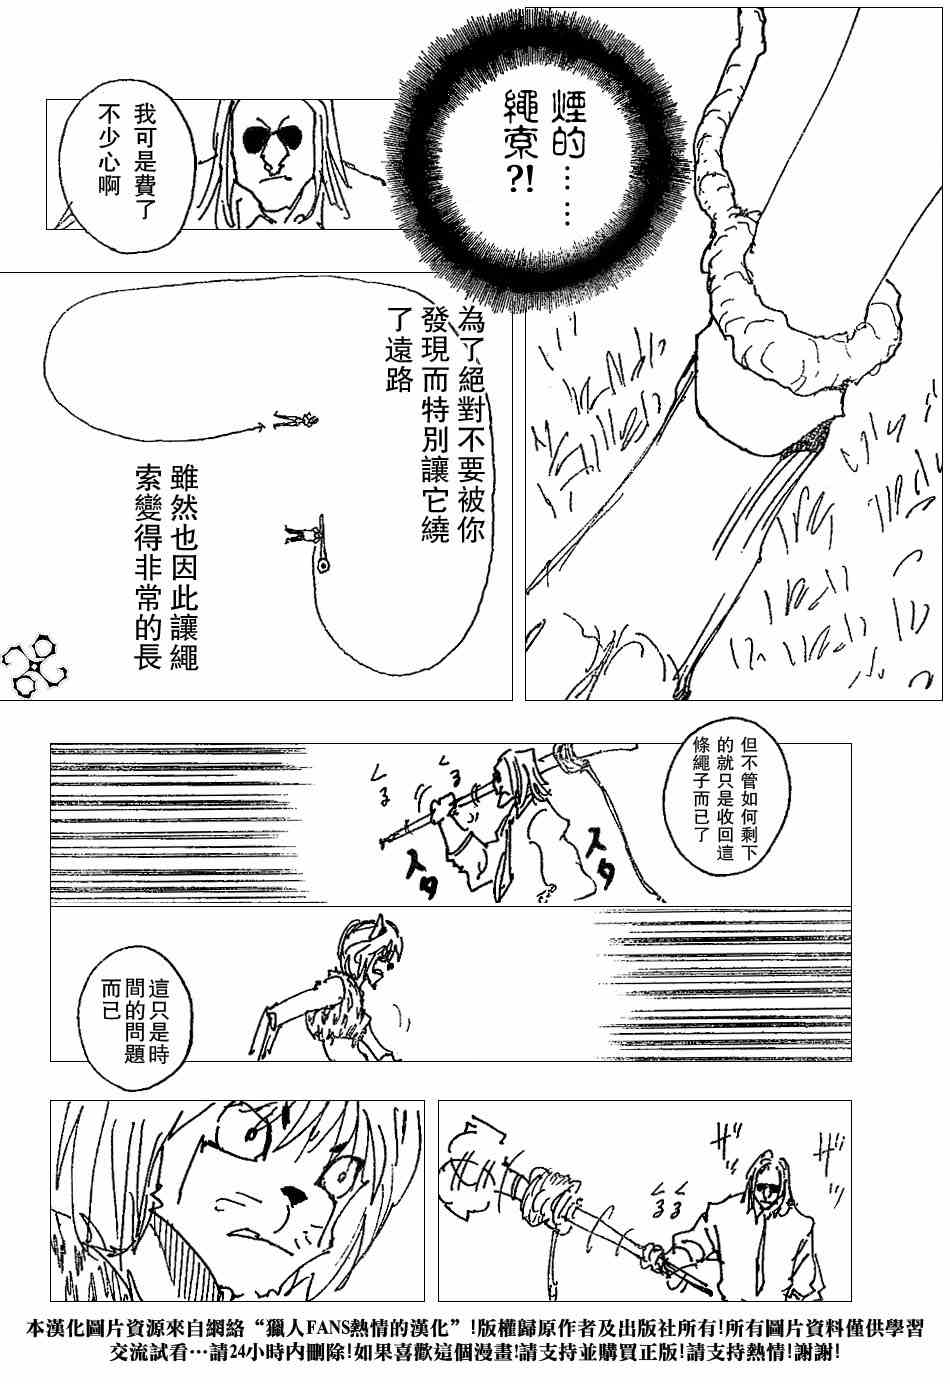 煙的……
繩索?!
我可是費了
不少心啊
為了絕對不要被你
發現而特別讓它繞
了遠路
雖然也因此讓繩
索變得非常的長
但不管如何剩下
的就只是收回這
條繩子而已了
くる
くる
スタ
スタ
這只是時
間的問題
而已
ザッ
ザッ
くる
くる
本漢化圖片資源來自網絡“獵人FANS熱情的漢化”!版權歸原作者及出版社所有!所有圖片資料僅供學習
交流試看…請24小時内刪除!如果喜歡這個漫畫!請支持並購買正版!請支持熱情!謝謝!